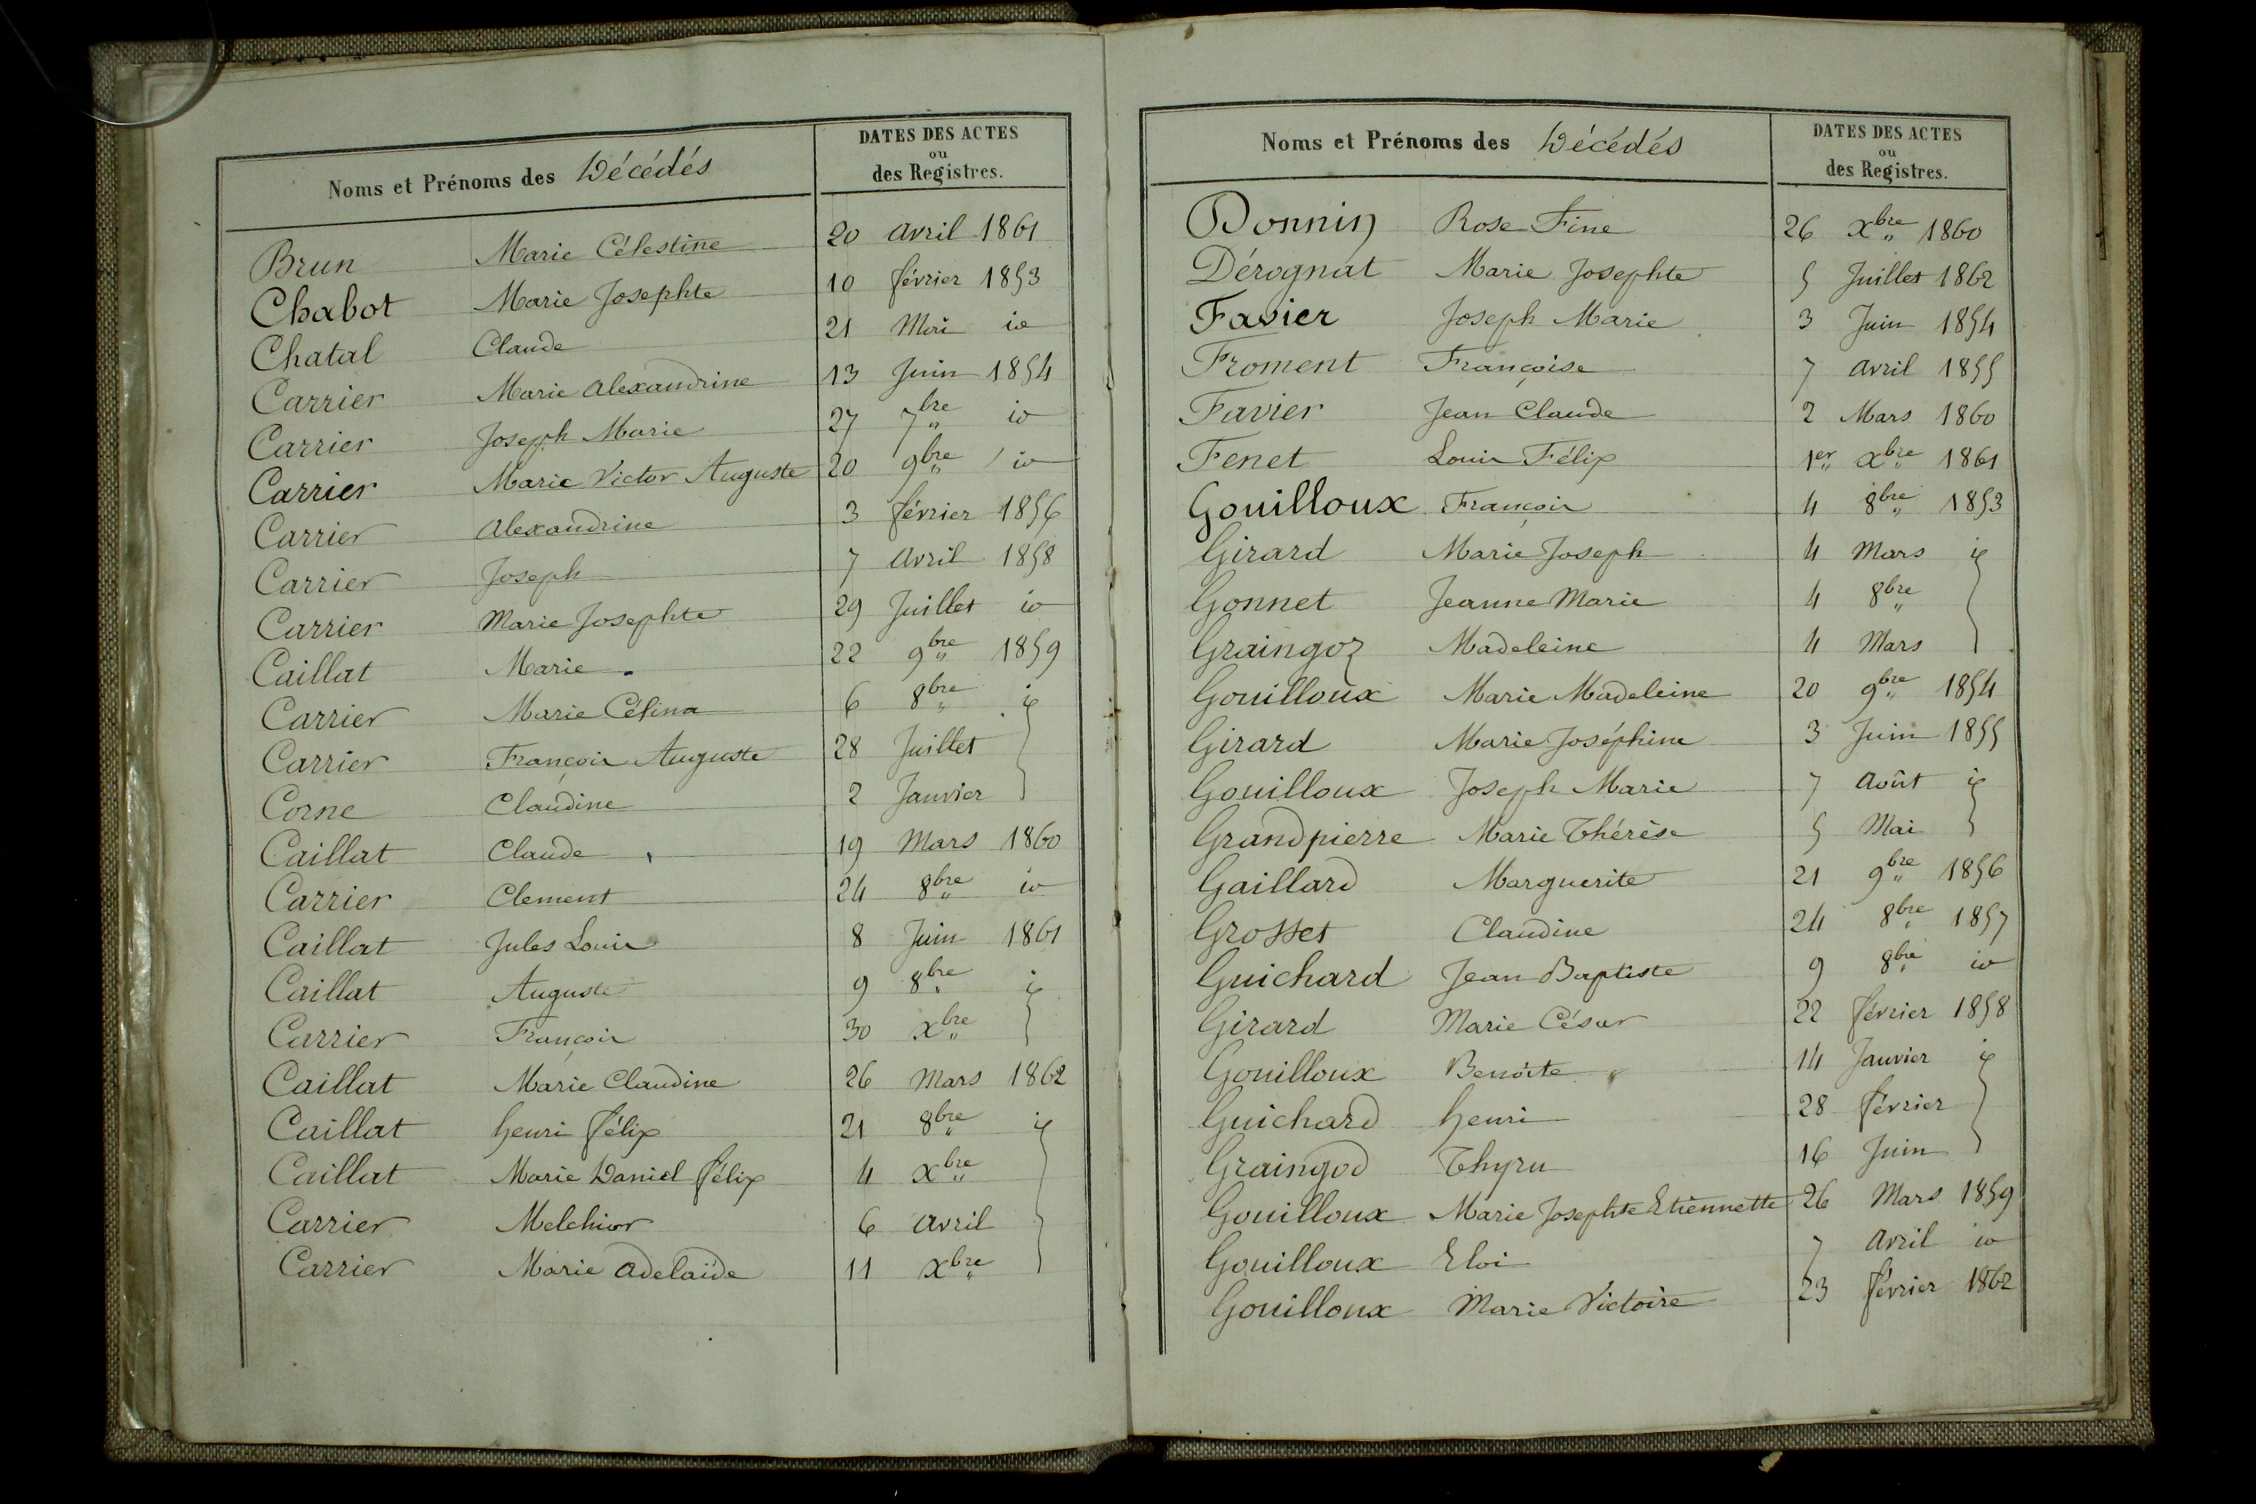 Noms et Prénoms des Décédés
DATES DES ACTES
ou
des Registres.
Brun Marie Célestine 20 avril 1861
Chabot Marie Josephte 10 février 1853
Chatal Claude 21 Mai io
Carrier Marie alexandrine 13 Juin 1854
Carrier Joseph Marie 27 7bre io
Carrier Marie Victor Auguste 20 9bre io
Carrier alexandrine 3 février 1856
Carrier Joseph 7 avril 1858
Carrier Marie Josephte 29 Juillet io
Caillat Marie 22 9bre 1859
Carrier Marie Célina 6 8bre io
Carrier François Auguste 28 Juillet
Corne Claudine 2 Janvier
Caillat Claude 19 Mars 1860
Carrier Clement 24 8bre io
Caillat Jules Louis 8 Juin 1861
Caillat Auguste 9 8bre io
Carrier François 30 xbre
Caillat Marie Claudine 26 Mars 1862
Caillat henri félix 21 8bre io
Caillat Marie Daniel félix 4 xbre
Carrier Melchior 6 avril
Carrier Marie adelaïde 11 xbre
Noms et Prénoms des Décédés
DATES DES ACTES
ou
des Registres.
Donnin Rose Fine 26 xbre 1860
Dérognat Marie Josephte 5 Juillet 1862
Favier Joseph Marie 3 Juin 1854
Froment Françoise 7 avril 1855
Favier Jean Claude 2 Mars 1860
Fenet Louis Félix 1er xbre 1861
Gouilloux François 4 8bre 1853
Girard Marie Joseph 4 Mars io
Gonnet Jeanne Marie 4 8bre
Graingoz Madeleine 4 Mars
Gouilloux Marie Madeleine 20 9bre 1854
Girard Marie Joséphine 3 Juin 1855
Gouilloux Joseph Marie 7 août io
Grandpierre Marie Thérèse 5 Mai
Gaillard Marguerite 21 9bre 1856
Grosset Claudine 24 8bre 1857
Guichard Jean Baptiste 9 8bre io
Girard Marie César 22 février 1858
Gouilloux Benoite 14 Janvier io
Guichard henri 28 février
Graingod Thyru 16 Juin
Gouilloux Marie Josephte Etiennette 26 Mars 1859
Gouilloux Eloi 7 avril io
Gouilloux Marie Victoire 23 février 1862